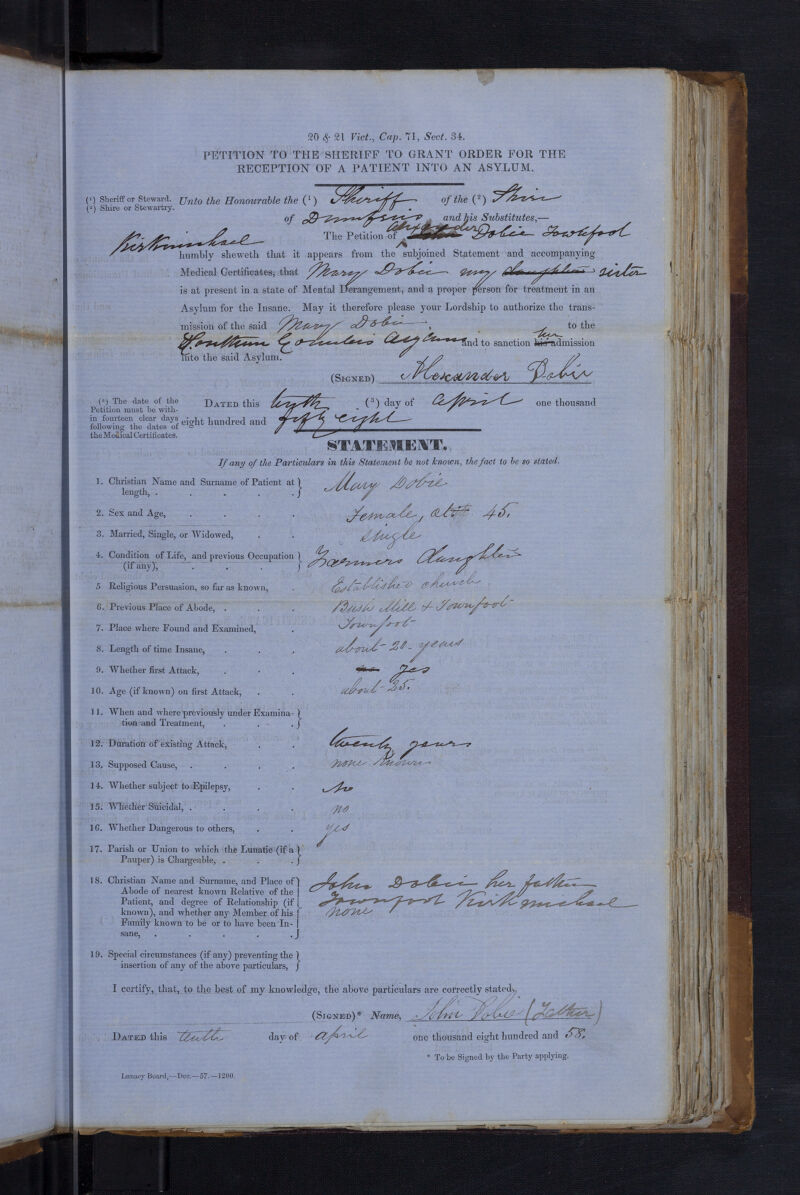 20 & 21 Vict., Cap. 71, Sect. 34.
PETITION TO THE SHERIFF TO GRANT ORDER FOR THE
RECEPTION OF A PATIENT INTO AN ASYLUM.
(¹) Sheriff or Steward.
(²) Shire or Stewartry.
Unto the Honourable the (¹) Sheriff of the (²) Shire
of Dumfries and his Substitutes,—
The Petition of Alexander John Dobie Townfoot
Kirkmichael
humbly sheweth that it appears from the subjoined Statement and accompanying
Medical Certificates, that Mary Dobie my daughter sister
is at present in a state of Mental Derangement, and a proper person for treatment in an
Asylum for the Insane. May it therefore please your Lordship to authorize the trans-
mission of the said Mary Dobie to the
Southern Counties Asylum and to sanction his her admission
into the said Asylum.
(SIGNED) Alexander Dobie
(³) The date of the
Petition must be with-
in fourteen clear days
following the dates of
the Medical Certificates.
DATED this tenth (³) day of April one thousand
eight hundred and fifty eight
STATEMENT.
If any of the Particulars in this Statement be not known, the fact to be so stated.
1. Christian Name and Surname of Patient at
length, . Mary Dobie
2. Sex and Age, Female, abt 45.
3. Married, Single, or Widowed, Single
4. Condition of Life, and previous Occupation
(if any), Farmers daughter
5 Religious Persuasion, so far as known, Established church
6. Previous Place of Abode, . Bush Mill & Townfoot
7. Place where Found and Examined, Townfoot
8. Length of time Insane, about 20 years
9. Whether first Attack, no yes
10. Age (if known) on first Attack, about 25.
11. When and where previously under Examina-
tion and Treatment,
12. Duration of existing Attack, twenty years
13. Supposed Cause, none known
14. Whether subject to Epilepsy, No
15. Whether Suicidal, . no
16. Whether Dangerous to others, yes
17. Parish or Union to which the Lunatic (if a
Pauper) is Chargeable, .
18. Christian Name and Surname, and Place of
Abode of nearest known Relative of the
Patient, and degree of Relationship (if
known), and whether any Member of his
Family known to be or to have been In-
sane, .
John Dobie her father
Townfoot Kirkmichael
none
19. Special circumstances (if any) preventing the
insertion of any of the above particulars,
I certify, that, to the best of my knowledge, the above particulars are correctly stated.
(SIGNED)* Name, John Dobie (Father)
DATED this tenth day of April one thousand eight hundred and 58.
* To be Signed by the Party applying.
Lunacy Board,—Dec.—57.—1200.